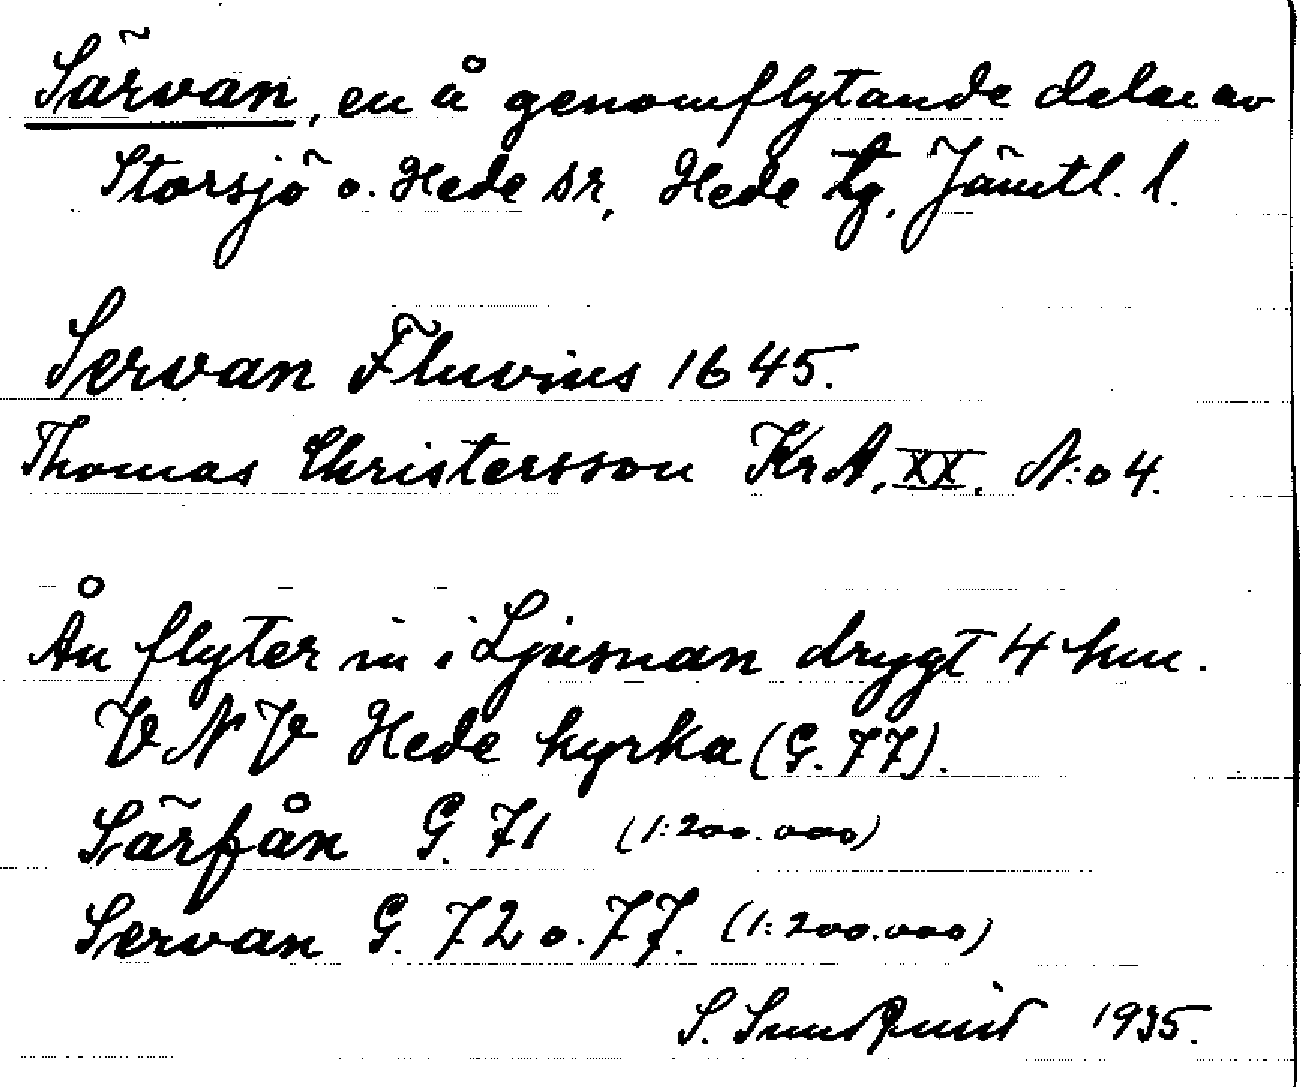 Särvan, en å genomflytande delar av
Storsjö o. Hede sr, Hede tg, Jämtl. l.
Servan Fluvius 1645.
Thomas Christersson KrA, XX, N:o 4.
Ån flyter in i Ljusnan drygt 4 km.
V N V Hede kyrka (G. 77).
Särfån G. 71 (1:200.000)
Servan G. 72 o. 77. (1:200.000)
S. Sundquist 1935.